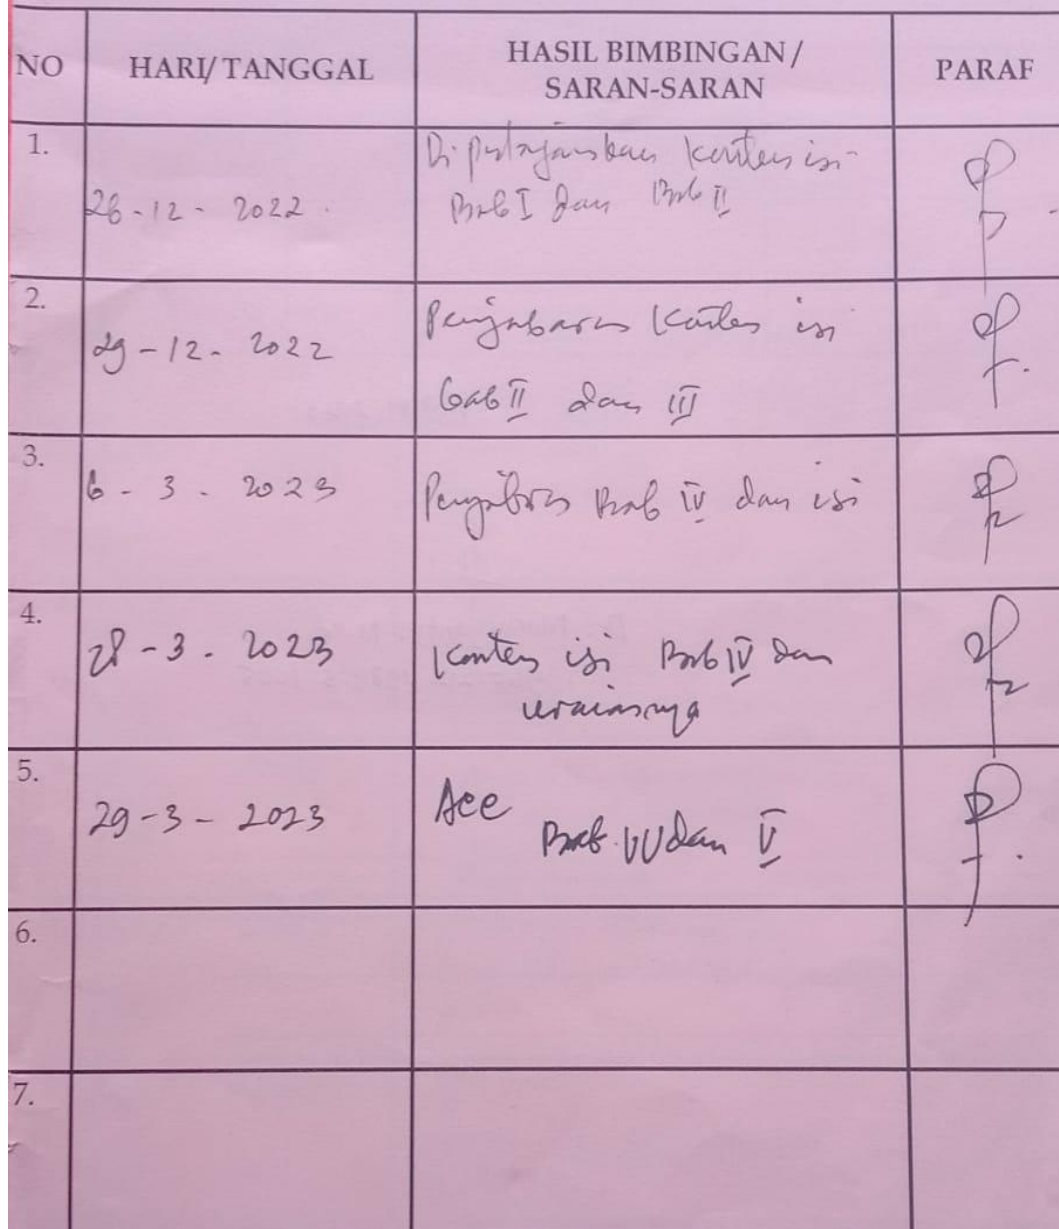 NO HARI/TANGGAL HASIL BIMBINGAN/ PARAF
SARAN-SARAN
1.
26-12-2022. konten isi
Bab I dan Bab II
2.
29-12-2022 Penjabaran Konten isi
bab II dan III
3.
6-3-2023 Bab IV dan isi
4.
28-3-2023 Konten isi Bab IV dan
urainnya
5.
29-3-2023 Acc
Bab IV dan V
6.
7.